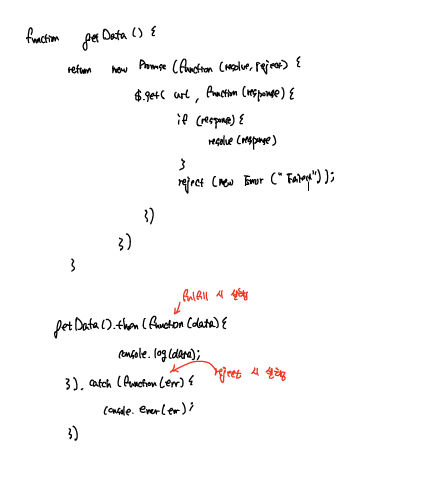 function getData () {
return new Promise (function (resolve, reject) {
$.get( url , function (response) {
if (response) {
resolve (response)
}
reject (new Error ("Failed"));
})
})
}
fulfill 시 실행
getData().then (function (data) {
console.log (data);
reject 시 실행
}). catch (function (err) {
console. error (err) ;
})